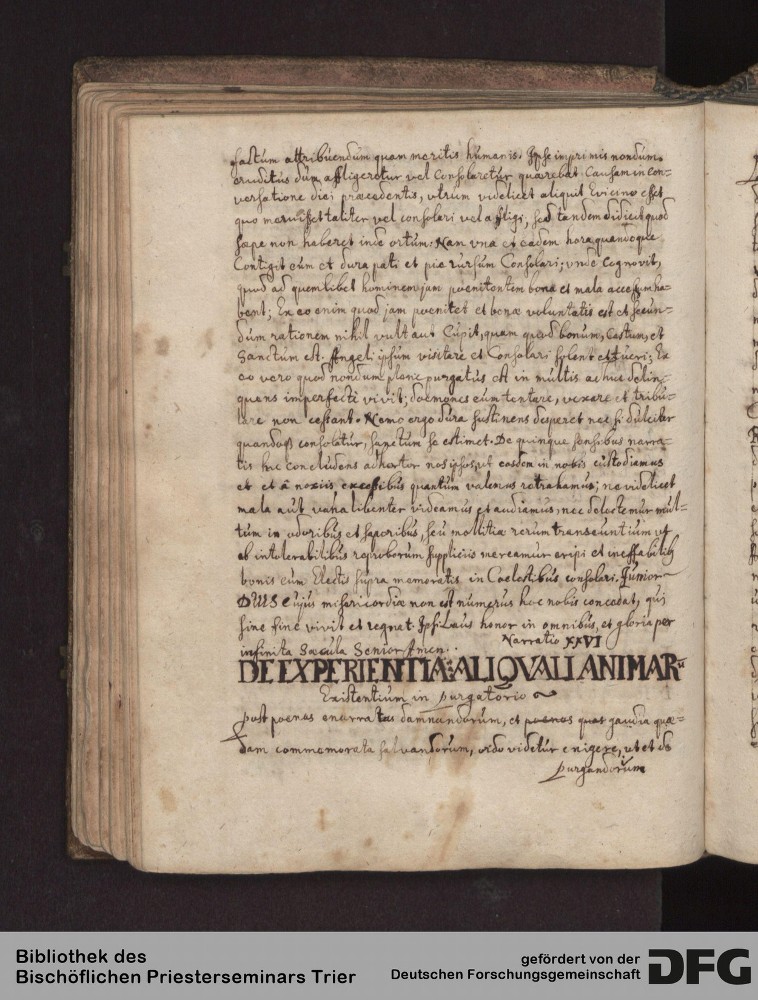 factum attribuendum quam meritis humanis. Ipse imprimis nondum
eruditus dum affligeretur vel Consolaretur quaerebat Causam in con-
versatione diei praecedentis, utrum videlicet aliquit Evicino esset
quo meruisset taliter vel consolari vel affligi, sed tandem didicit quod
saepe non haberet inde ortum. Nam vna et eadem hora quandoque
Contigit eum et dura pati et pie rursum Consolari; vnde Cognovit,
quod ad quemlibet hominem jam poenitentem bona et mala accessum ha-
bent; Ex eo enim quod jam poenitet et bonae voluntatis est et secun-
dum rationem nihil vult aut Cupit, quam quod bonum, Castum, et
Sanctum est. Angeli ipsum visitare et Consolari solent et tueri; Ex
eo vero quod nondum plane purgatus est in multis adhuc delin-
quens imperfecte vivit; daemones eum tentare, vexare et tribu-
lare non cessant. Nemo ergo dura sustinens desperet nec si dulciter
quandoq3 consolatur, sanctum se estimet. De quinque sensibus narra-
tis hic concludens adhortor nos ipsos ut eosdem in nobis custodiamus
et et à noxiis excessibus quantum valemus retrahamus; ne videlicet
mala aut vana libenter videamus et audiamus, nec delectemur mul-
tum in odoribus et saporibus, seu mollitia rerum transeuntium vt
ab intolerabilibus reproborum suppliciis mereamur eripi et ineffabilib
bonis cum Electis supra memoratis in Coelestibus consolari. Junior
DEUS cujus misericordiae non est numerus hoc nobis concedat, qui
sine fine vivit et regnat. Ipsi Laus honor in omnibus, et gloria per
infinita Saecula Senior Amen.. Narratio XXVI
DE EXPERIENTIA ALIQVALI ANIMAR
Existentium in purgatorio
Post poenas enarratas damnandorum, et poenas quas gaudia quae-
dam commemorata salvandorum, ordo videtur exigere, ut et de
purgandorum
Bibliothek des
Bischöflichen Priesterseminars Trier
gefördert von der
Deutschen Forschungsgemeinschaft
DFG